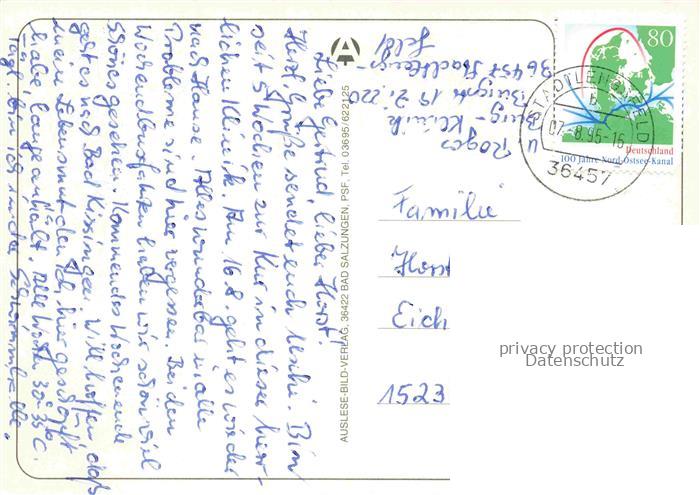 Liebe Gertrud, liebe Horst!
Herzl. Grüße sendet euch Uschi. Bin
seit 5 Wochen zur Kur in dieser herr-
lichen Klinik. Am 16.8. geht es wieder
nach Hause. Alles wunderbar u. alle
Probleme sind hier vergessen. Bei den
Wochenendausfahrten haben wir schon viel
schönes gesehen. Kommendes Wochenende
geht es nach Bad Kissingen. Will hoffen, daß
mein Lebensmut den ich hier geschöpft
habe lange anhält. Alle Wochen 30-35°C.
Tägl. bin ich in der Schwimmhalle.
Roges
Burg-Klinik
Burgstr. 19 Zi. 220
36457 Stadtlengs-
feld
AUSLESE-BILD-VERLAG, 36422 BAD SALZUNGEN, PSF, Tel. 03695/622125
80
Deutschland
100 Jahre Nord-Ostsee-Kanal
STADTLENGSFELD
b
07.-8.95-16
36457
Familie
Horst
Eich
1523
privacy protection
Datenschutz